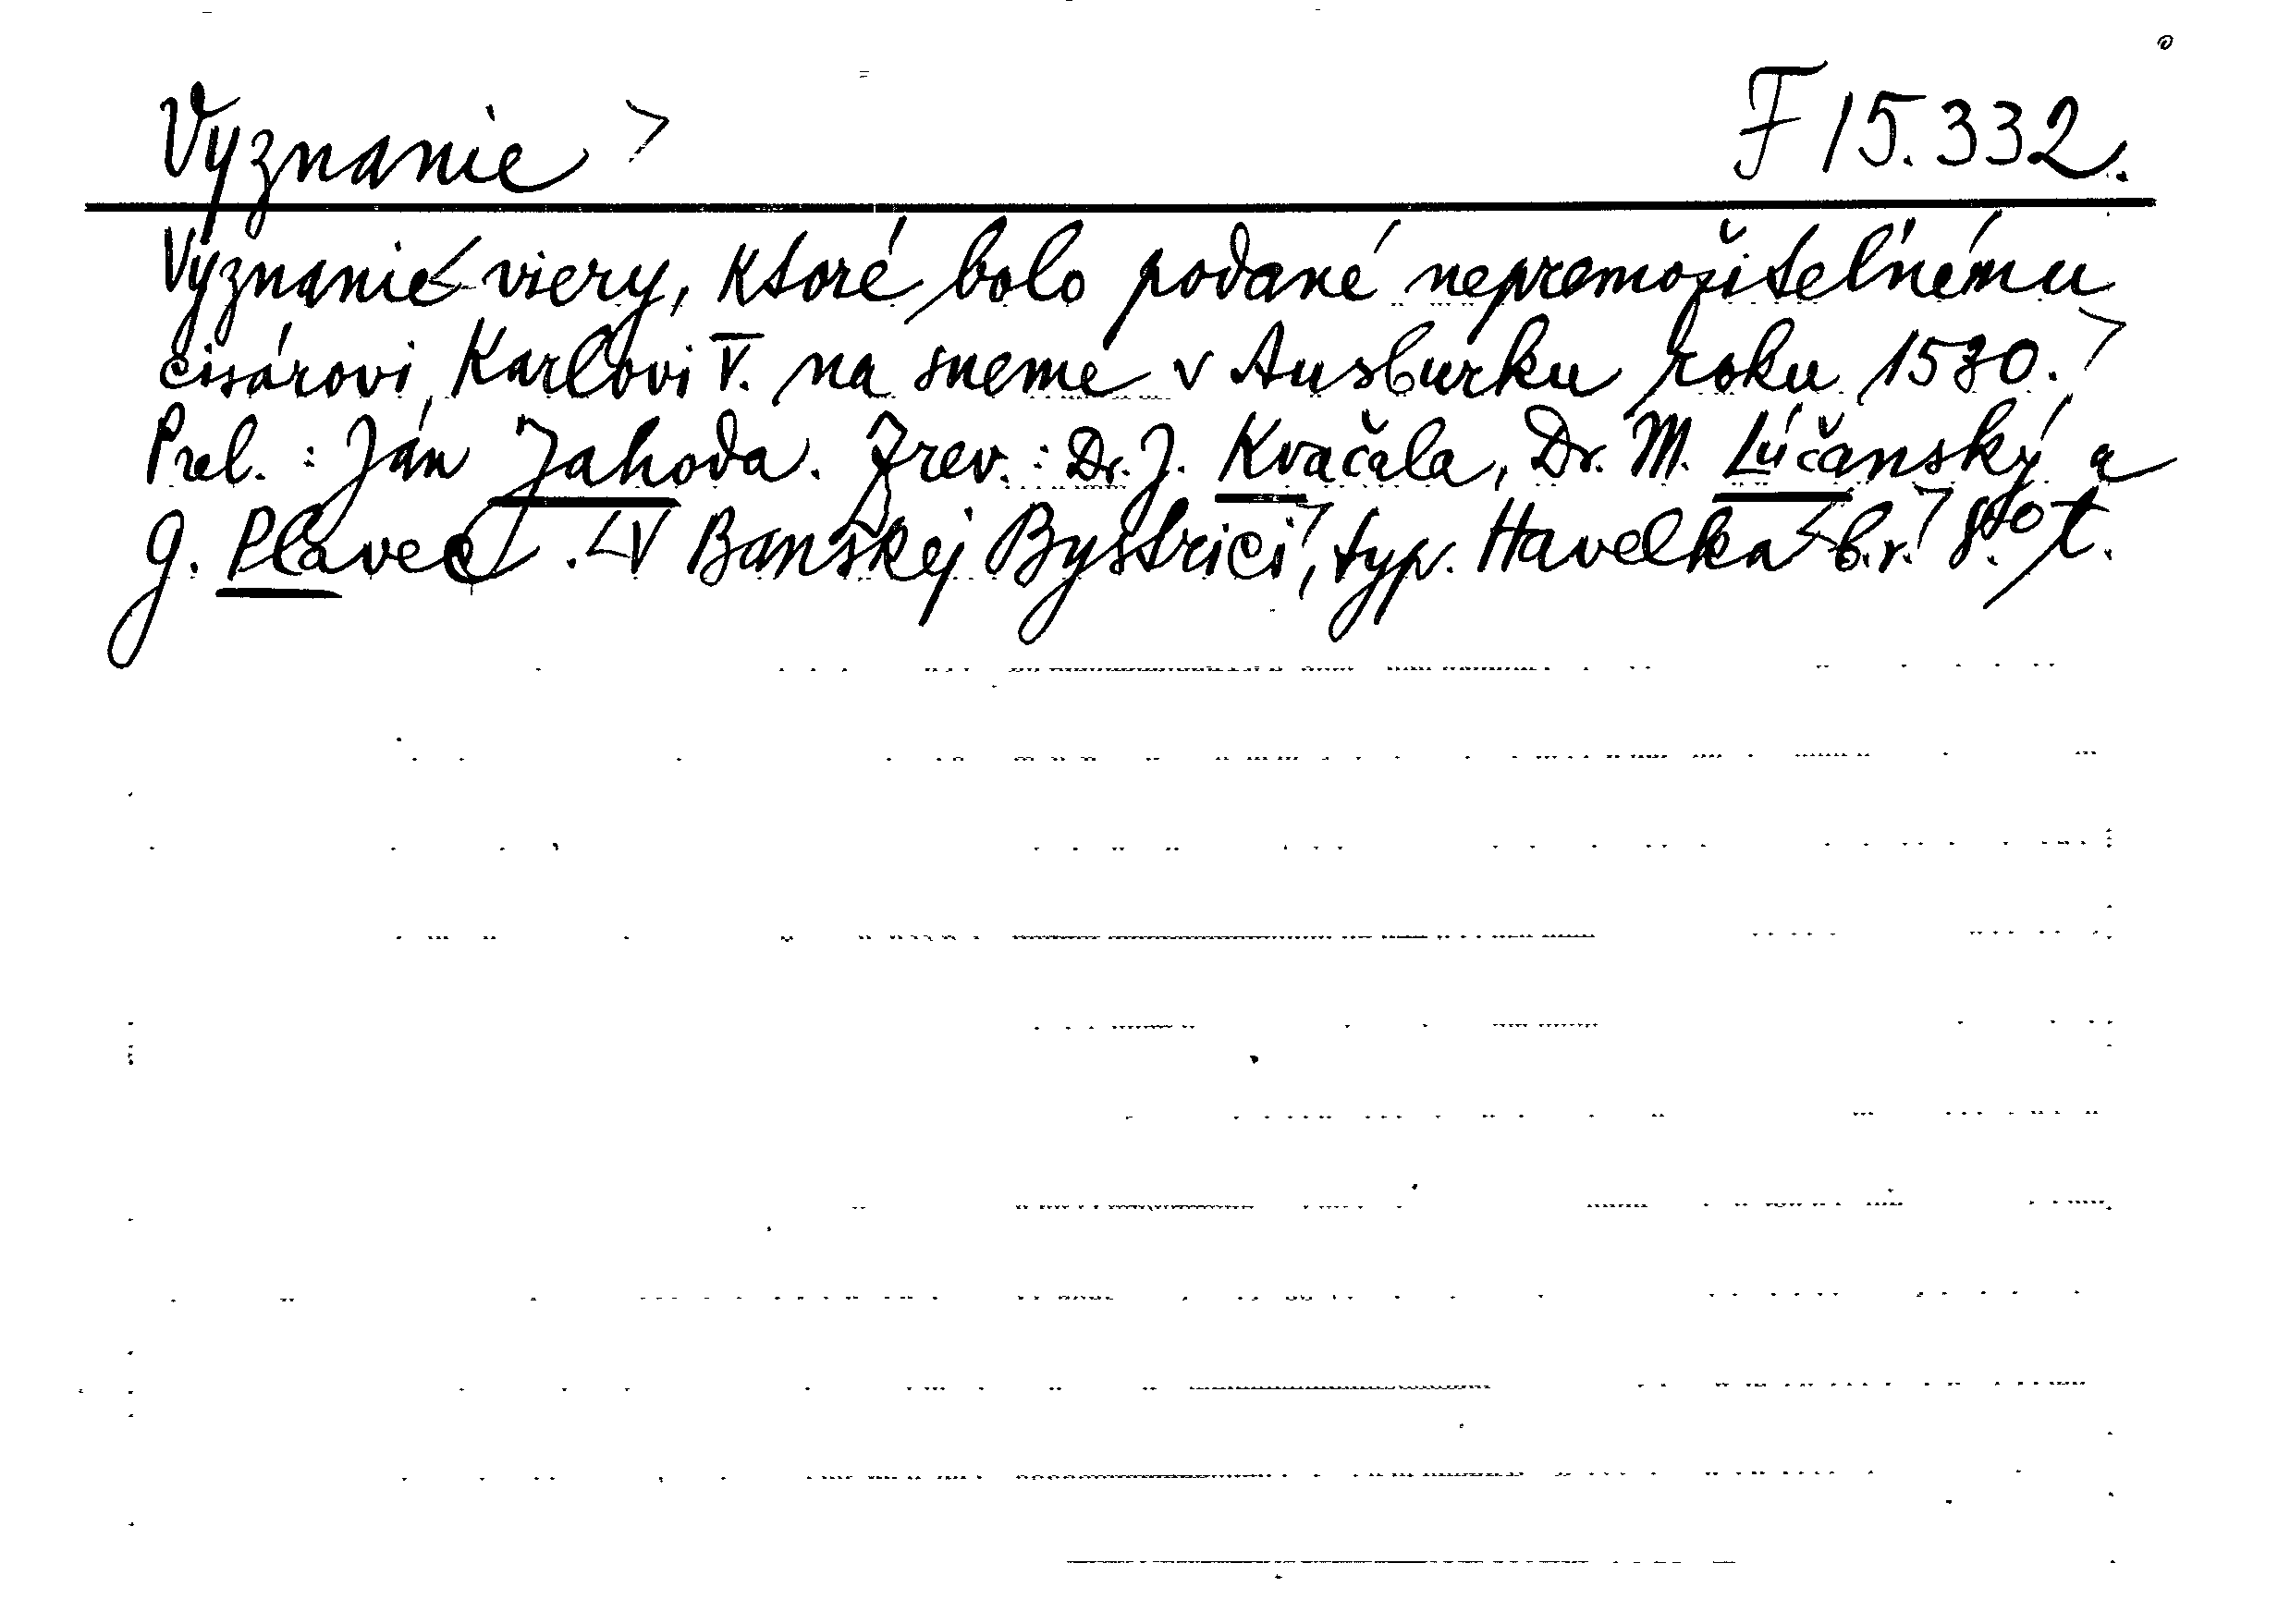 Vyznanie >
F 15.332.
Vyznanie< viery, ktoré bolo podané nepremožiteľnému
cisárovi Karlovi V. na sneme v Ausburku roku 1530. >
Prel. : Ján Jahoda. Zrev. : Dr. J. Kvačala, Dr. M. Lúčanský a
G. Plavec . < V Banskej Bystrici >, typ. Havelka < b.r. > 8° t.